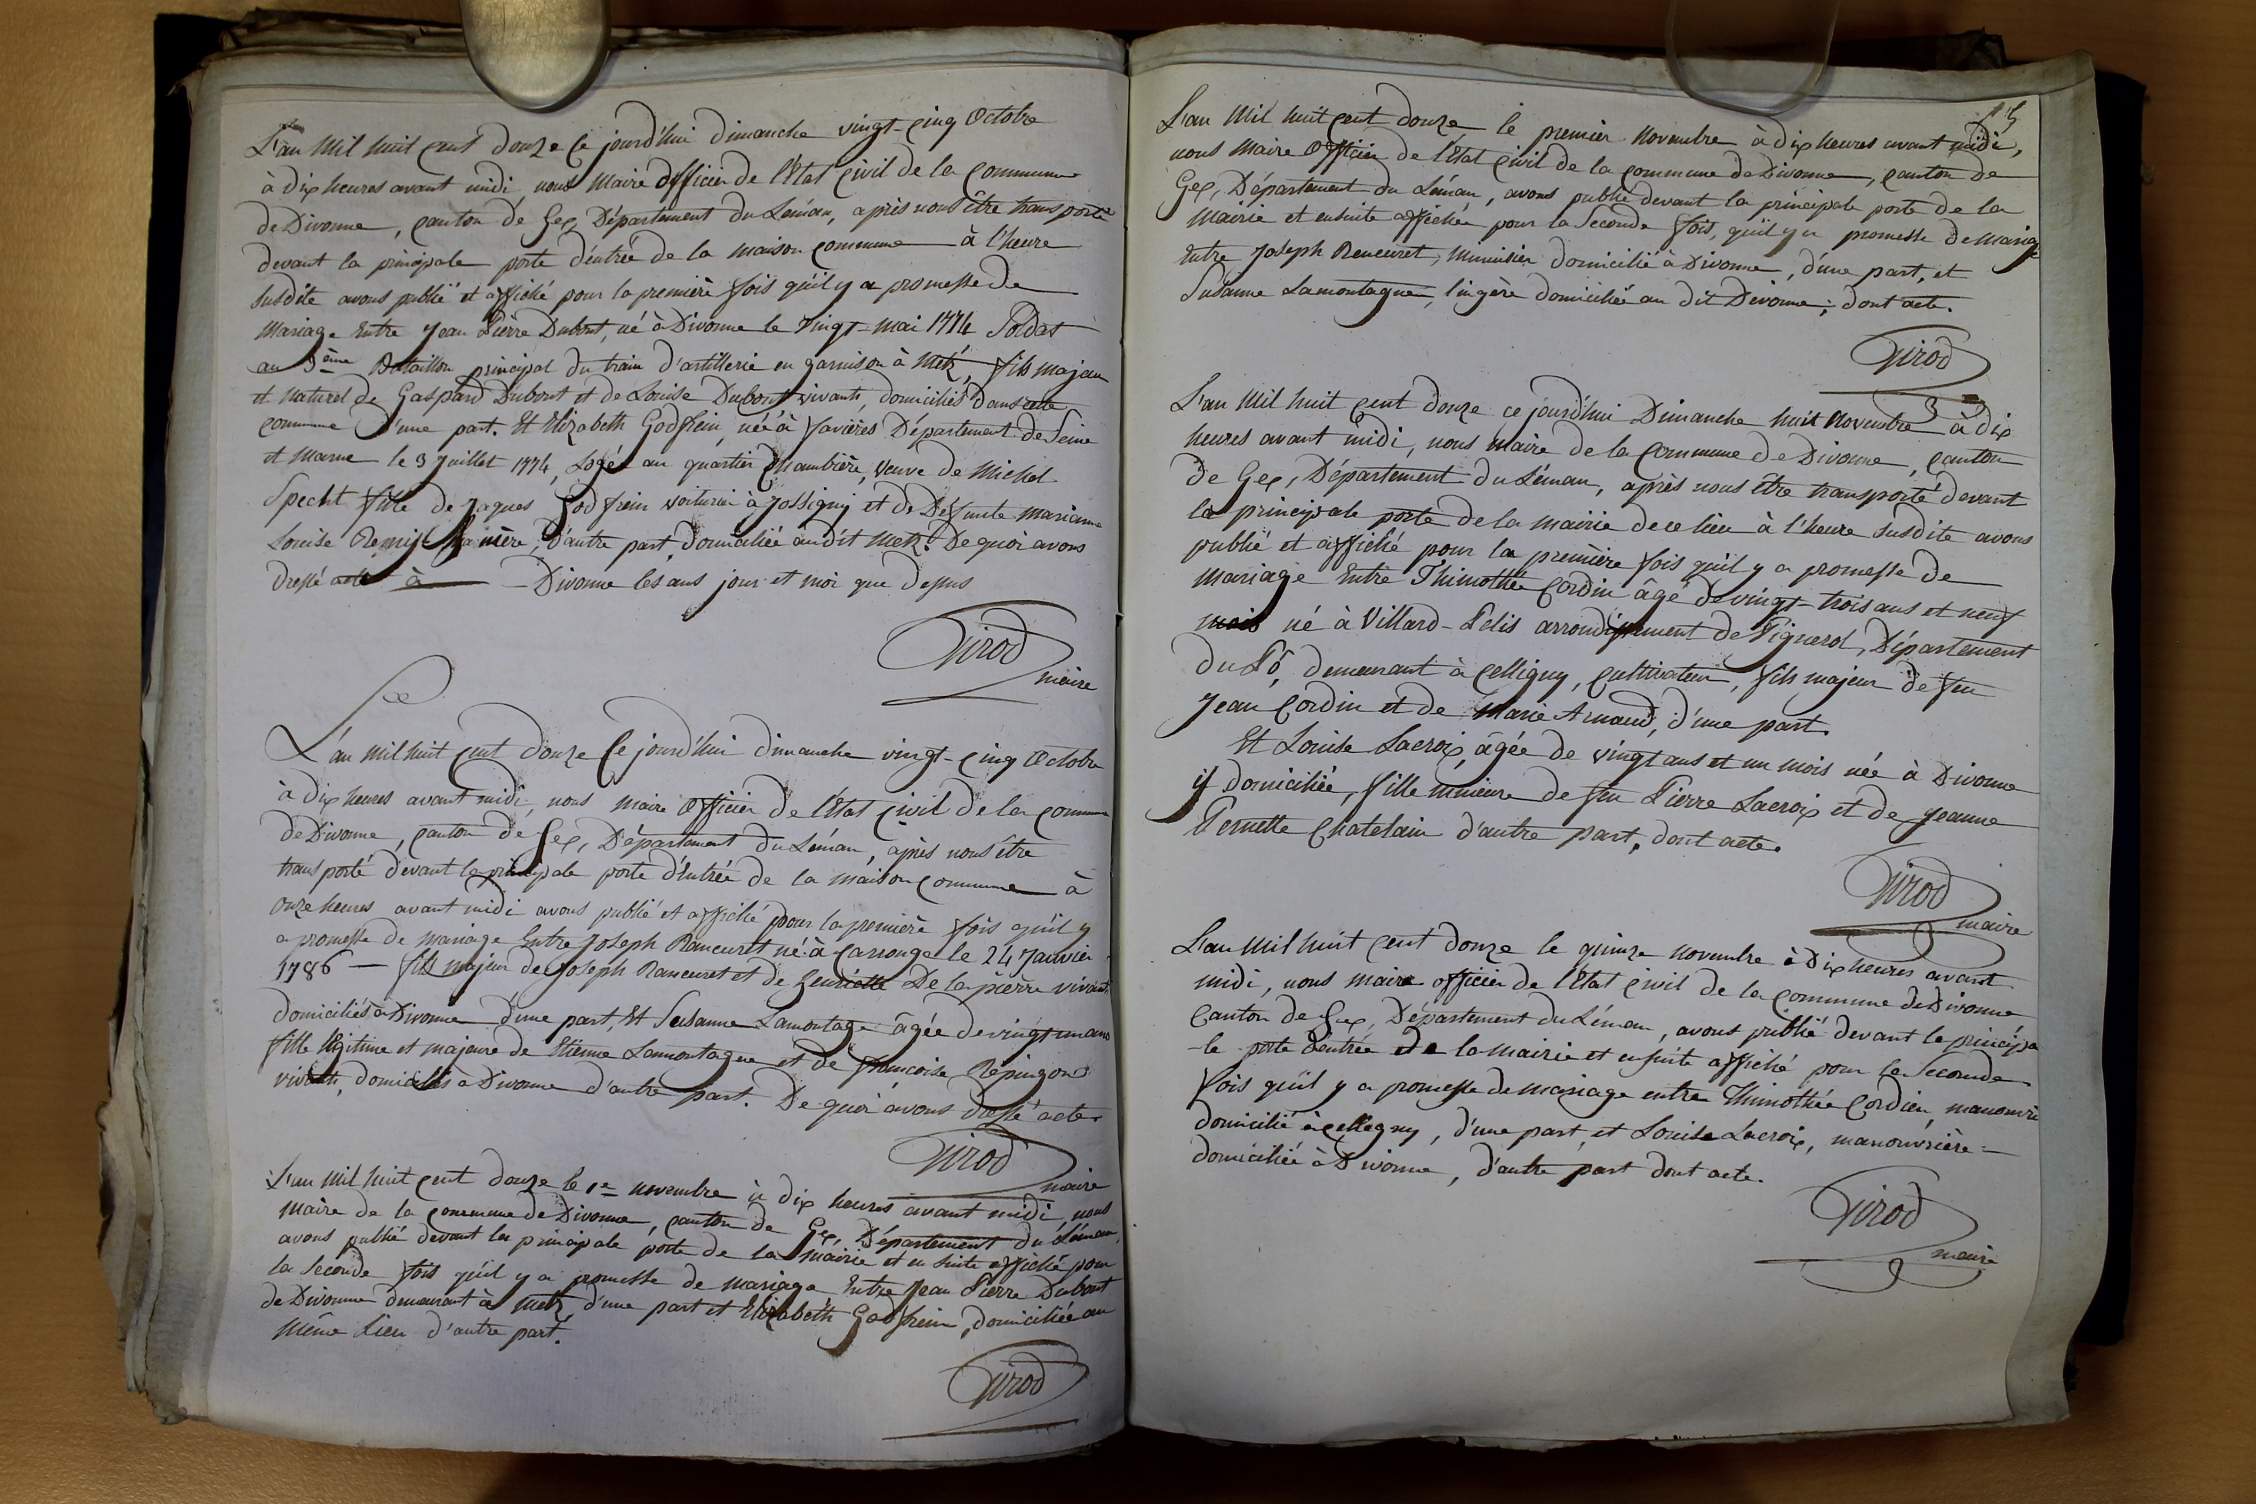 L'an Mil huit cent douze Ce jourd'hui dimanche vingt-cinq Octobre
à dix heures avant midi, nous Maire Officier de l'Etat Civil de la Commune
de Divonne, canton de Gex, Département du Léman, après nous être transporté
devant la principale porte d'entrée de la maison commune à l'heure
susdite avons publié et affiché pour la première fois qu'il y a promesse de
Mariage Entre Jean Pierre Dubout, né à Divonne le vingt mai 1774 Soldat
au 3ème Bataillon principal du train d'artillerie en garnison à Metz, fils majeur
et naturel de Gaspard Dubout et de Louise Dubout vivants, domiciliés dans cette
commune d'une part. Et Elizabeth Godfrein, née à Favières Département de Seine
et Marne le 3 Juillet 1774, Logée au quartier Chambière, Veuve de Michel
Specht fille de Jaques Godfrein voiturier à Jossigny et de Defunte Marianne
Louise Remij sa mère, d'autre part, domiciliée audit Metz. De quoi avons
dressé acte à Divonne les ans jour et moi que dessus
Girod
maire
L'an mil huit cent douze Ce jourd'hui dimanche vingt-cinq Octobre
à dix heures avant midi, nous maire Officier de l'Etat Civil de la commune
de Divonne, canton de Gex, Département du Léman, après nous être
transporté devant la principale porte d'entrée de la maison commune à
onze heures avant midi avons publié et affiché pour la première fois qu'il y
a promesse de mariage Entre Joseph Ranceuret né à Carrouge le 24 Janvier
1786 — fils majeur de Joseph Ranceuret et de henriette De la pierre vivants
domiciliés à Divonne d'une part, Et Susanne Lamontagne âgée de vingt un ans
fille légitime et majeure de Etienne Lamontagne et de francoise Répingon
vivants, domiciliés à Divonne d'autre part. De quoi avons dressé acte.
Girod
maire
L'an Mil huit cent douze le 1er novembre à dix heures avant midi, nous
Maire de la commune de Divonne, canton de Gex, Département du Léman,
avons publié devant la principale porte de la mairie et en suite affiché pour
la seconde fois qu'il y a promesse de mariage Entre Jean Pierre Dubout
de Divonne demeurant à Metz d'une part et Elizabeth Godfrein, domiciliée au
même Lieu d'autre part.
Girod
L'an Mil huit cent douze le premier Novembre à dix heures avant midi,
nous Maire Officier de l'Etat Civil de la commune de Divonne, canton de
Gex, Département du Léman, avons publié devant la principale porte de la
Mairie et ensuite affiché pour la Seconde fois, qu'il y a promesse de Mariage
Entre Joseph Renceuret, Menuisier domicilié à Divonne, d'une part, et
Susanne Lamontagne, lingère domiciliée au dit Divonne; dont acte.
Girod
L'an Mil huit cent douze ce jourd'hui Dimanche huit Novembre à dix
heures avant midi, nous maire de la Commune de Divonne, canton
de Gex, Département du Léman, après nous être transporté devant
la principale porte de la mairie de ce lieu à l'heure susdite avons
publié et affiché pour la première fois qu'il y a promesse de
Mariage Entre Thimothée Cordin âgé de vingt-trois ans et neuf
mois né à Villard-Pelis arrondissement de Pignerol, Département
du Pô, demeurant à Celligny, Cultivateur, fils majeur de feu
Jean Cordin et de Marie Arnaud, d'une part.
Et Louise Lacroix, âgée de vingt ans et un mois née à Divonne
y domiciliée, fille mineure de feu Pierre Lacroix et de Jeanne
Pernette Chatelain d'autre part, dont acte.
Girod
maire
L'an Mil huit cent douze le quinze novembre à Dix heures avant
midi, nous maire officier de l'Etat Civil de la commune de Divonne
Canton de Gex, Département du Léman, avons publié devant la principa
-le porte d'entrée de la Mairie et ensuite affiché pour la Seconde
fois qu'il y a promesse de Mariage entre Thimothée Cordien, manouvrier
domicilié à Cellegny, d'une part, et Louise Lacroix, manouvrière
domiciliée à Divonne, d'autre part dont acte.
Girod
maire